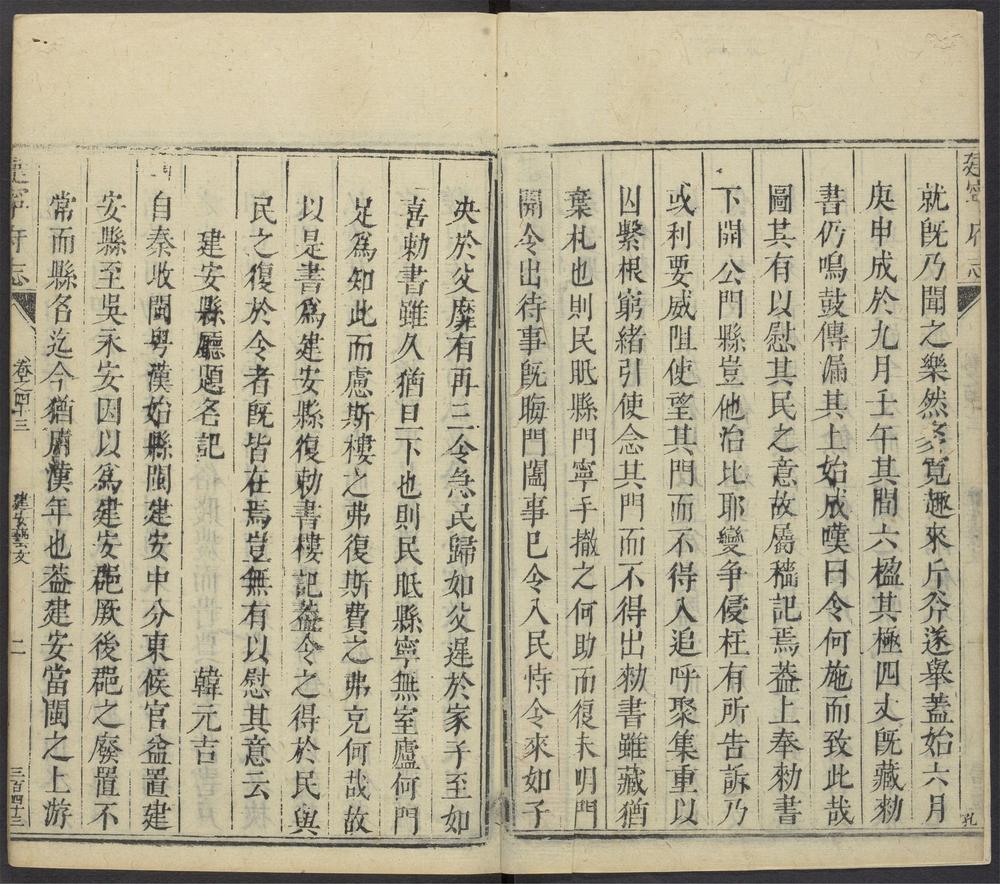 建寧府志
就旣乃聞之樂然終覓趣來斤斧遂舉蓋始六月
庚申成於九月壬午其間六楹其極四丈旣藏勑
書仍鳴鼓傳漏其上始成嘆曰令何施而致此哉
圖其有以慰其民之意故屬穡記焉葢上奉勑書
下開公門縣豈他治比耶變争侵枉有所告訴乃
或利要威阻使望其門而不得入追呼聚集重以
囚繫根窮緒引使念其門而不得出勑書雖藏猶
葉札也則民眂縣門寧手撤之何助而復未明門
開令出待事旣晦門闔事已令入民恃令來如子
孔
決於父靡有再三令急民歸如父遲於家子至如
喜勑書雖久猶旦下也則民眂縣寧無室廬何門
足爲知此而慮斯樓之弗復斯費之弗克何哉故
以是書爲建安縣復勑書樓記葢令之得於民與
民之復於令者旣皆在焉豈無有以慰其意云
建安縣廳題名記 韓元吉
自秦收閩粤漢始縣閩建安中分東候官益置建
安縣至吳永安因以爲建安郡厥後郡之廢置不
常而縣名迄今猶屬漢年也葢建安當閩之上游
建寧府志
卷之四十三
建安藝文
二
三百四十三